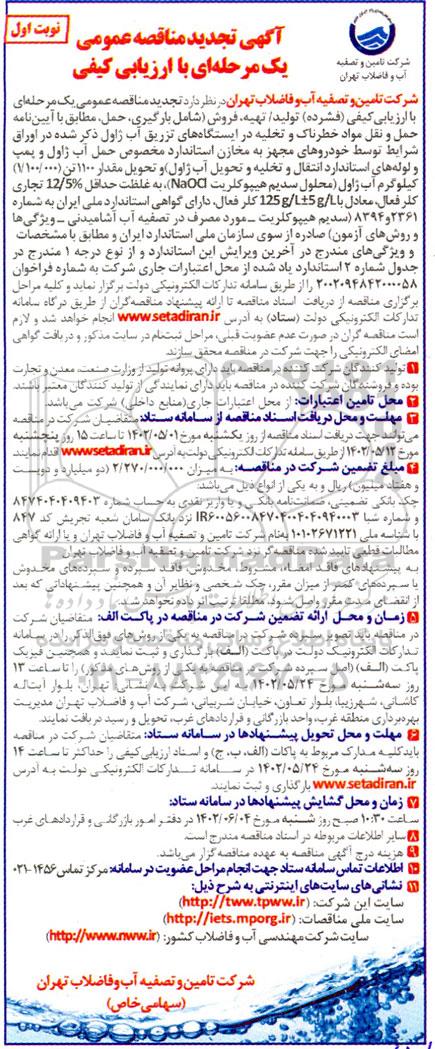 نوبت اول
شرکت تامین و تصفیه
آب و فاضلاب تهران
آگهی تجدید مناقصه عمومی
یک مرحله‌ای با ارزیابی کیفی
شرکت تامین و تصفیه آب و فاضلاب تهران در نظر دارد تجدید مناقصه عمومی یک مرحله‌ای
با ارزیابی کیفی (فشرده) تولید/ تهیه، فروش (شامل بارگیری، حمل، مطابق با آیین‌نامه
حمل و نقل مواد خطرناک و تخلیه در ایستگاه‌های تزریق آب ژاول ذکر شده در اوراق
شرایط توسط خودروهای مجهز به مخازن استاندارد مخصوص حمل آب ژاول و پمپ
و لوله‌های استاندارد انتقال و تخلیه و تحویل آب ژاول) و تحویل مقدار ۱۱۰۰ تن (۱/۱۰۰/۰۰۰)
کیلوگرم آب ژاول (محلول سدیم هیپوکلریت NaOCl)، به غلظت حداقل 12/5% تجاری
کلر فعال، معادل با 125g/L±5g/L کلر فعال، دارای گواهی استاندارد ملی ایران به شماره
۲۳۶۱ و ۸۳۹۴ (سدیم هیپوکلریت ـ مورد مصرف در تصفیه آب آشامیدنی ـ ویژگی‌ها
و روش‌های آزمون) صادره از سوی سازمان ملی استاندارد ایران و مطابق با مشخصات
و ویژگی‌های مندرج در آخرین ویرایش این استاندارد و از نوع درجه ۱ مندرج در
جدول شماره ۲ استاندارد یاد شده از محل اعتبارات جاری شرکت به شماره فراخوان
۲۰۰۲۰۹۴۸۴۲۰۰۰۰۵۸ را از طریق سامانه تدارکات الکترونیکی دولت برگزار نماید و کلیه مراحل
برگزاری مناقصه از دریافت اسناد مناقصه تا ارائه پیشنهاد مناقصه‌گران از طریق درگاه سامانه
تدارکات الکترونیکی دولت (ستاد) به آدرس www.setadiran.ir انجام خواهد شد و لازم
است مناقصه گران در صورت عدم عضویت قبلی، مراحل ثبت‌نام در سایت مذکور و دریافت گواهی
امضای الکترونیکی را جهت شرکت در مناقصه محقق سازند.
۱ تولید کنندگان شرکت کننده در مناقصه باید دارای پروانه تولید از وزارت صنعت، معدن و تجارت
بوده و فروشندگان شرکت کننده در مناقصه باید دارای نمایندگی از تولید کنندگان معتبر باشند.
۲ محل تامین اعتبارات: از محل اعتبارات جاری (منابع داخلی) شرکت می‌باشد.
۳ مهلت و محل دریافت اسناد مناقصه از سامانه ستاد: متقاضیان شرکت در مناقصه
می‌توانند جهت دریافت اسناد مناقصه از روز یکشنبه مورخ ۱۴۰۲/۰۵/۰۱ تا ساعت ۱۵ روز پنجشنبه
مورخ ۱۴۰۲/۰۵/۱۲ از طریق سامانه تدارکات الکترونیکی دولت به آدرس www.setadiran.ir اقدام نمایند.
۴ مبلغ تضمین شرکت در مناقصه: به میزان ۲/۲۷۰/۰۰۰/۰۰۰ (دو میلیارد و دویست
و هفتاد میلیون) ریال و به یکی از انواع ذیل می‌باشد:
چک بانکی تضمینی، ضمانت‌نامه بانکی و یا واریز نقدی به حساب شماره ۸۴۷۴۰۴۰۴۰۹۴۰۳
و شماره شبا نزد بانک سامان شعبه تجریش کد ۸۴۷
با شناسه ملی ۱۰۱۰۲۶۷۱۲۲۱ به‌نام شرکت تامین و تصفیه آب و فاضلاب تهران و یا ارائه گواهی
مطالبات قطعی تایید شده مناقصه‌گر نزد شرکت تامین و تصفیه آب و فاضلاب تهران
به پیشنهادهای فاقد امضاء، مشروط، مخدوش، فاقد سپرده و سپرده‌های مخدوش
یا سپرده‌های کمتر از میزان مقرر، چک شخصی و نظایر آن و همچنین پیشنهاداتی که بعد
از انقضای مدت مقرر واصل شود، مطلقا ترتیب اثر داده نخواهد شد.
۵ زمان و محل ارائه تضمین شرکت در مناقصه در پاکت الف: متقاضیان شرکت
در مناقصه باید تصویر سپرده شرکت در مناقصه به یکی از روش‌های فوق‌الذکر را در سامانه
تدارکات الکترونیک دولت در پاکت (الف) بارگذاری و ثبت نمایند و همچنین فیزیک
پاکت (الف) (اصل سپرده شرکت در مناقصه به یکی از روش‌های مذکور) را تا ساعت ۱۳
روز سه‌شنبه مورخ ۱۴۰۲/۰۵/۲۴ به این شرکت به نشانی: تهران، بلوار آیت‌اله
کاشانی، شهرزیبا، بلوار تعاون، خیابان شربیانی، شرکت آب و فاضلاب تهران مدیریت
بهره‌برداری منطقه غرب، واحد بازرگانی و قراردادهای غرب، تحویل و رسید دریافت نمایند.
۶ مهلت و محل تحویل پیشنهادها در سامانه ستاد: متقاضیان شرکت در مناقصه
باید کلیه مدارک مربوط به پاکات (الف، ب، ج) و اسناد ارزیابی کیفی را حداکثر تا ساعت ۱۴
روز سه‌شنبه مورخ ۱۴۰۲/۰۵/۲۴ در سامانه تدارکات الکترونیکی دولت به آدرس
www.setadiran.ir بارگذاری و ثبت نمایند.
۷ زمان و محل گشایش پیشنهادها در سامانه ستاد:
ساعت ۱۰:۳۰ صبح روز شنبه مورخ ۱۴۰۲/۰۶/۰۴ در دفتر امور بازرگانی و قراردادهای غرب
۸ سایر اطلاعات مربوطه در اسناد مناقصه مندرج است.
۹ هزینه درج آگهی مناقصه به عهده مناقصه گزار می‌باشد.
۱۰ اطلاعات تماس سامانه ستاد جهت انجام مراحل عضویت در سامانه: مرکز تماس ۱۴۵۶-۰۲۱
۱۱ نشانی‌های سایت‌های اینترنتی به شرح ذیل:
سایت این شرکت: (http://tww.tpww.ir)
سایت ملی مناقصات: (http://iets.mporg.ir)
سایت شرکت مهندسی آب و فاضلاب کشور: (http://www.nww.ir)
شرکت تامین و تصفیه آب و فاضلاب تهران
(سهامی خاص)